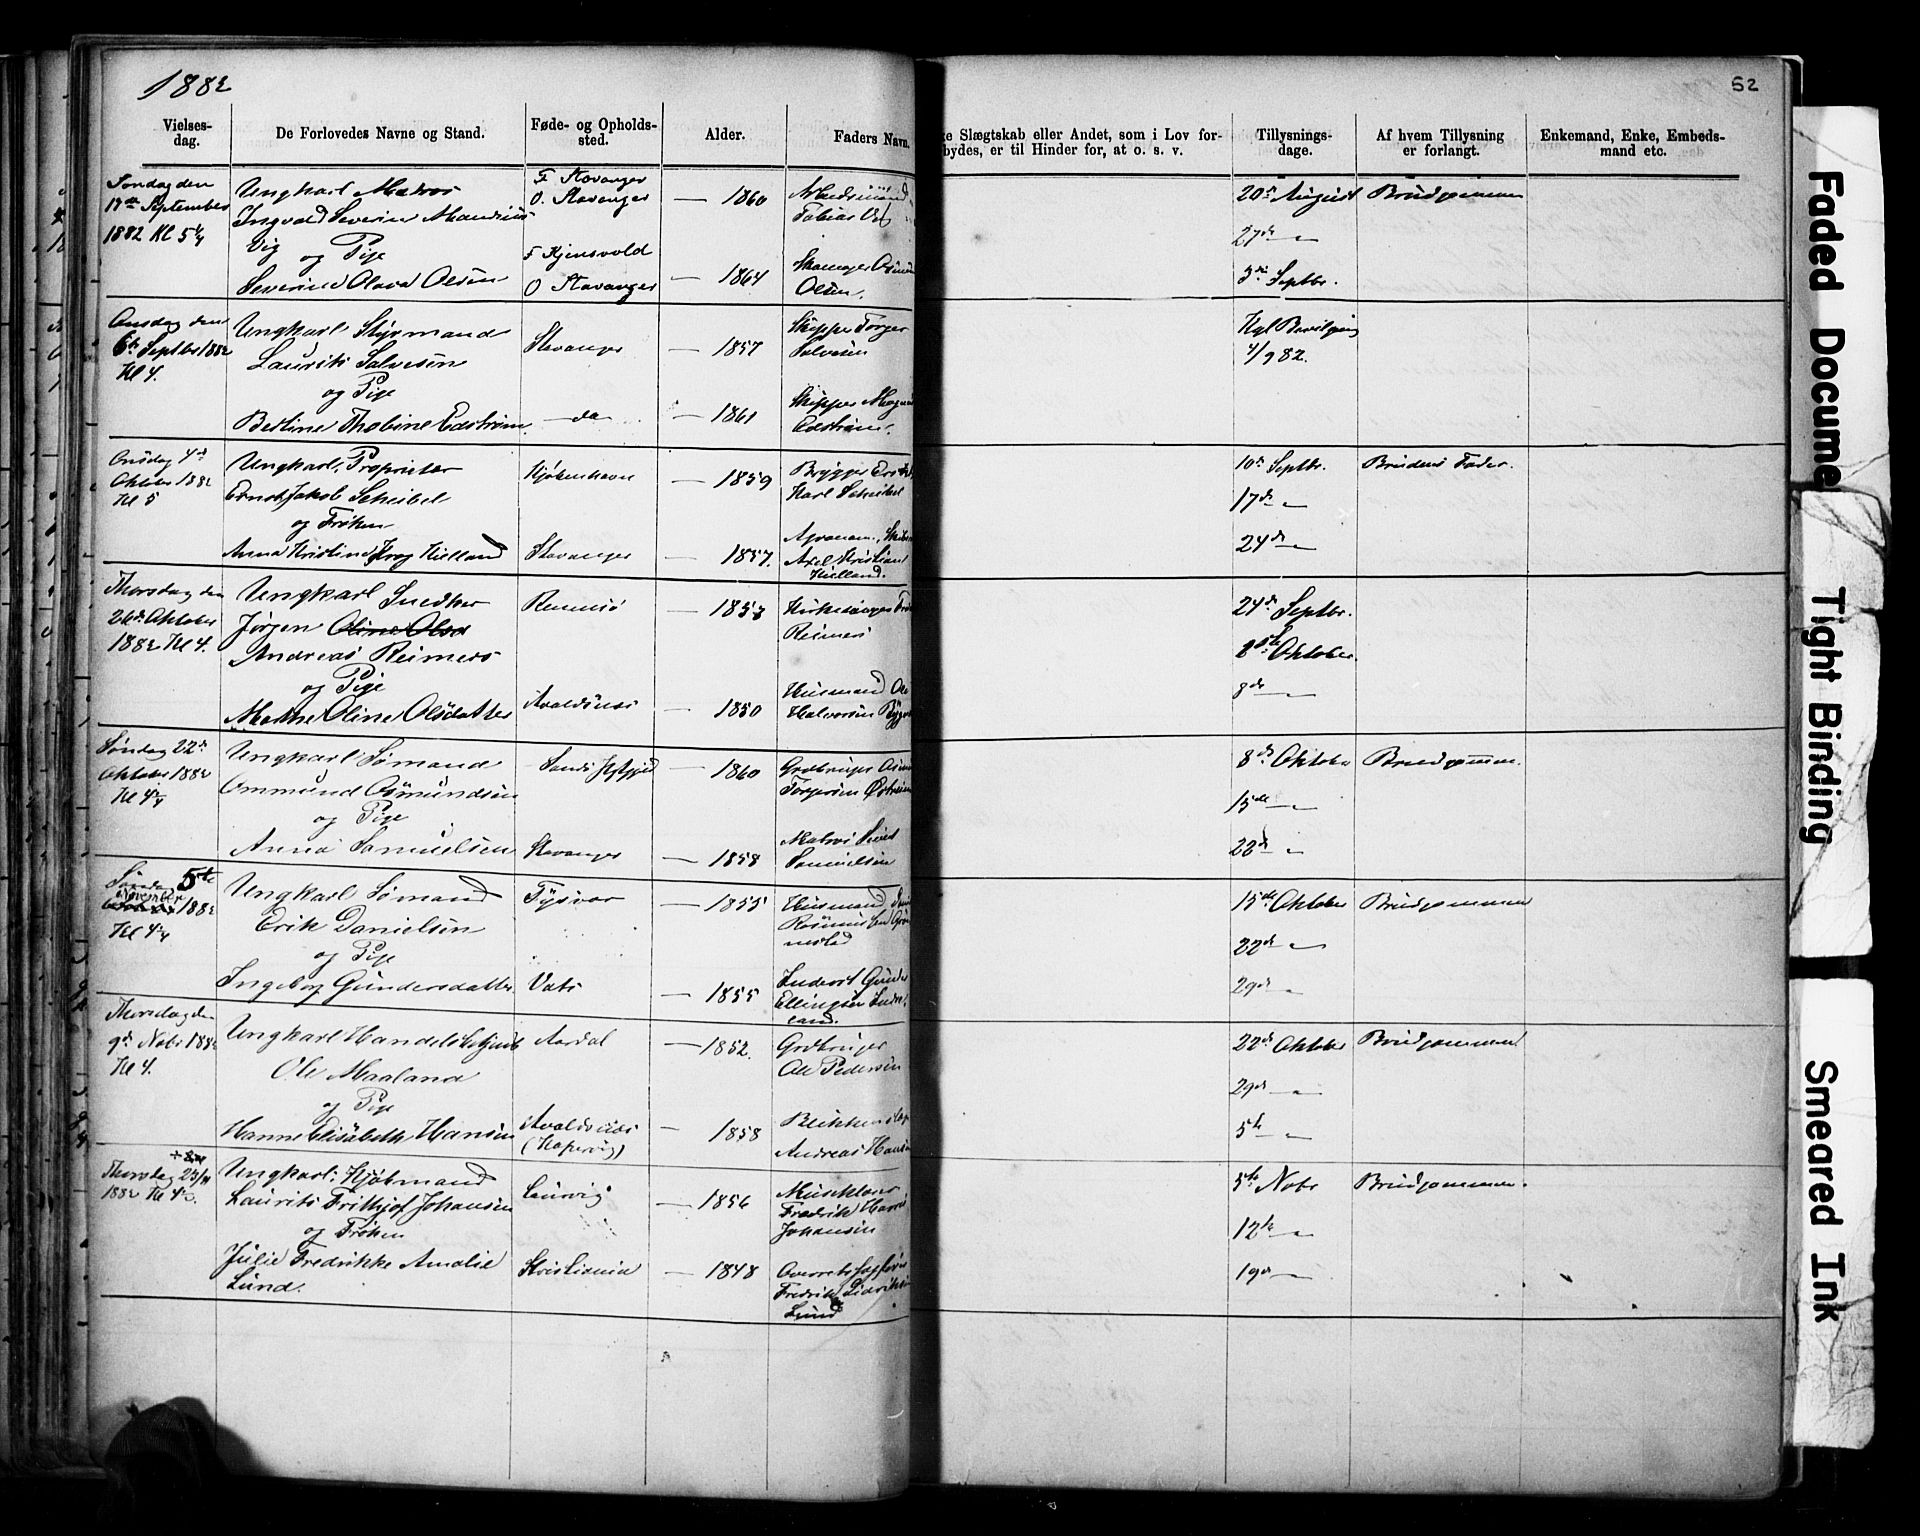 1882
52
Vielses-
dag.
De Forlovedes Navne og Stand.
Føde- og Opholds-
sted.
Alder.
Faders Navn.
Slægtskab eller Andet, som i Lov for-
bydes, er til Hinder for, at o. s. v.
Tillysnings-
dage.
Af hvem Tillysning
er forlangt.
Enkemand, Enke, Embeds-
mand etc.
Søndag den
17de September
1882 Kl 5
Ungkarl Matros
Ingvald Severin
Vig
og Pige
Severine Olava Olsen
F Stavanger
O. Stavanger
F
O Stavanger
— 1860
— 1864
Tobias
Olsen.
20de August
27de "
3die Septbr.
Brudgommen
Onsdag den
6te Septbr 1882
Kl 4.
Ungkarl Styrmand
Laurits Salvesen
og Pige
Bertine Thobine Edström.
Stavanger
— do
— 1857
— 1861
Skipper Torger
Salvesen
Skipper
Edström.
Kgl Bevilgning
4/9 82.
Onsdag 4de
Oktober 1882
Kl 5
Ungkarl, Proprietær
Ernst Jakob Scheibel
og Frøken
Anna Kristine Krog Kielland
Kjøbenhavn
Stavanger
— 1859
— 1857.
Brygger
Karl Scheibel
Axel Kristian
Kielland.
10de Septbr.
17de "
24de "
Brudens Fader.
Thorsdag den
26de Oktober
1882 Kl 4.
Ungkarl Snedker
Jørgen Oline Olsd
Andreas Reimers
og Pige
Malene Oline Olsdatter
Rennesø
Avaldsnes
— 1857
— 1850
Kirkesanger
Reimers
Husmand
Halvorsen
24de Septbr.
8de Oktober.
8de "
Søndag 22de
Oktober 1882
Kl 4
Ungkarl Sømand
Ommund Osmundsen
og Pige
Anna Samuelsen
Stavanger
— 1860
— 1858
Grdbruger
Torgersen
Matros
Samuelsen
8de Oktober
15de "
22de "
Brudgommen.
Søndag 5te
November 1882
Kl 4
Ungkarl Sømand
Erik Danielsen
og Pige
Ingeborg Gundersdatter.
Tysvær
Vats
— 1855
— 1855
Husmand
Rasmussen
Inderst Gunder
Ellingsen
land.
15de Oktober
22de "
29de "
Brudgommen
Thorsdag den
9de Nobr 1882
Kl 4.
Ungkarl Handelsbetjent
Ole Maaland
og Pige
Hanne Elisabeth Hansen
Aardal
Avaldsnes
(Kopervig)
— 1852.
— 1858
Grdbruger
Ole Pedersen
Andreas Hansen
22de Oktober
29de "
5te "
Brudgommen
Thorsdag 23/11
1882 Kl 4
Ungkarl, Kjøbmand
Laurits Frithjof Johansen
og Frøken
Julie Fredrikke Amalie
Lund.
Laurvig
Kristiania
— 1856
— 1848
Fredrik
Johansen
Fredrik
Lund
5te Nobr
12te "
19de "
Brudgommen.
Faded Docume
Tight Binding
Smeared Ink